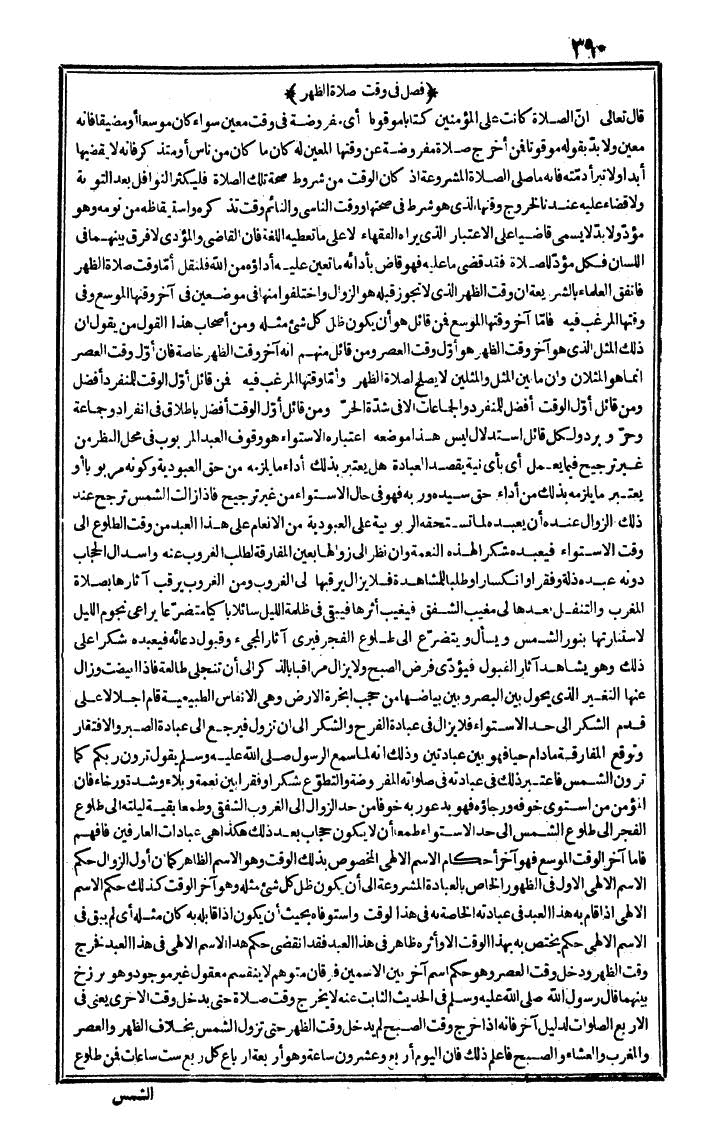 ٣٩٠
﴿فصل فى وقت صلاة الظهر﴾
قال تعالى انّ الصلاة كانت على المؤمنين كتابا موقوتا أى مفروضة فى وقت معين سواء كان موسعا أو مضيقا فانه
معين ولا بدّ بقوله موقوتا فن أخرج صلاة مفروضة عن وقتها المعين له كان ما كان من ناس أو متذكر فانه لا يقضيها
أبدا ولا تبرأ ذمّته فانه ماصلى الصلاة المشروعة اذ كان الوقت من شروط صحة تلك الصلاة فليكثر النوافل بعد التوبة
ولا قضاء عليه عندنا لخروج وقتها الذى هو شرط فى صحتها ووقت الناسى والنائم وقت تذكره واستيقاظه من نومه وهو
مؤدّ ولا بدّ لا يسمى قاضيا على الاعتبار الذى يراه الفقهاء لا على ما تعطيه اللغة فان القاضى والمؤدى لا فرق بينهما فى
اللسان فكل مؤدّ للصلاة فقد قضى ما عليه فهو قاض بأدائه ما تعين عليه أداؤه من الله فلنقل أمّا وقت صلاة الظهر
فاتفق العلماء بالشريعة ان وقت الظهر الذى لا تجوز قبله هو الزوال واختلفوا منها فى موضعين فى آخر وقتها الموسع وفى
وقتها المرغب فيه فامّا آخر وقتها الموسع فن قائل هو أن يكون ظل كل شئ مثله ومن أصحاب هذا القول من يقول ان
ذلك المثل الذى هو آخر وقت الظهر هو أوّل وقت العصر ومن قائل منهم انه آخر وقت الظهر خاصة فان أوّل وقت العصر
انما هو المثلان وان ما بين المثل والمثلين لا يصلح لصلاة الظهر وأمّا وقتها المرغب فيه فن قائل أوّل الوقت للمنفرد أفضل
ومن قائل أوّل الوقت أفضل للمنفرد والجماعات الا فى شدّة الحرّ ومن قائل أوّل الوقت أفضل باطلاق فى انفراد وجماعة
وحرّ وبرد ولكل قائل استدلال ليس هذا موضعه اعتباره الاستواء هو وقوف العبد المربوب فى محل النظر من
غير ترجيح فيما يعمل أى بأى نية يقصد العبادة هل يعتبر بذلك أداء ما يلزمه من حق العبودية وكونه مربوبا أو
يعتبر ما يلزمه بذلك من أداء حق سيده وربه فهو فى حال الاستواء من غير ترجيح فاذا زالت الشمس ترجح عند
ذلك الزوال عنده أن يعبده لما تستحقه الربوبية على العبودية من الانعام على هذا العبد من وقت الطلوع الى
وقت الاستواء فيعبده شكرا لهذه النعمة وان نظر الى زوالها بعين المفارقة لطلب الغروب عنه واسدال الحجاب
دونه عبده ذلة وفقرا وانكسارا وطلبا للمشاهدة فلا يزال يرقبها الى الغروب ومن الغروب يرقب آثارها بصلاة
المغرب والتنفل بعدها الى مغيب الشفق فيغيب أثرها فيبقى فى ظلمة الليل سائلا باكيا متضرّعا يراعى نجوم الليل
لاستنارتها بنور الشمس ويسأل ويتضرّع الى طلوع الفجر فيرى آثار المجىء وقبول دعائه فيعبده شكرا على
ذلك وهو يشاهد آثار القبول فيؤدّى فرض الصبح ولا يزال مراقبا بالذكر الى أن تتجلى طالعة فاذا ابيضت وزال
عنها التغير الذى يحول بين البصر وبين بياضها من حجب ابخرة الارض وهى الانفاس الطبيعية قام اجلالا على
قدم الشكر الى حد الاستواء فلا يزال فى عبادة الفرح والشكر الى ان تزول فيرجع الى عبادة الصبر والافتقار
وتوقع المفارقة ما دام حيا فهو بين عبادتين وذلك انه لما سمع الرسول صلى الله عليه وسلم يقول ترون ربكم كما
ترون الشمس فاعتبر ذلك فى عبادته فى صلواته المفروضة والتطوّع شكرا وفقرا بين نعمة وبلاء وشدة ورخاء فان
المؤمن من استوى خوفه ورجاؤه فهو يدعو ربه خوفا من حد الزوال الى الغروب الشفقى وطمعا بقية ليلته الى طلوع
الفجر الى طلوع الشمس الى حد الاستواء طمعا أن لا يكون حجاب بعد ذلك هكذا هى عبادات العارفين فافهم
فاما آخر الوقت الموسع فهو آخر أحكام الاسم الالهى المخصوص بذلك الوقت وهو الاسم الظاهر كما ان أول الزوال حكم
الاسم الالهى الاول فى الظهور الخاص بالعبادة المشروعة الى أن يكون ظل كل شئ مثله وهو آخر الوقت كذلك حكم الاسم
الالهى اذا قام به هذا العبد فى عبادته الخاصة به فى هذا الوقت واستوفاه بحيث أن يكون اذا قابله به كان مثله أى لم يبق فى
الاسم الالهى حكم يختص به بهذا الوقت الا وأثره ظاهر فى هذا العبد فقد انقضى حكم هذا الاسم الالهى فى هذا العبد فخرج
وقت الظهر ودخل وقت العصر وهو حكم اسم آخر بين الاسمين فرقان متوهم لا ينقسم معقول غير موجود وهو برزخ
بينهما قال رسول الله صلى الله عليه وسلم فى الحديث الثابت عنه لا يخرج وقت صلاة حتى يدخل وقت الاخرى يعنى فى
الاربع الصلوات لدليل آخر فانه اذا خرج وقت الصبح لم يدخل وقت الظهر حتى تزول الشمس بخلاف الظهر والعصر
والمغرب والعشاء والصبح فاعلم ذلك فان اليوم أربع وعشرون ساعة وهو أربعة ارباع كل ربع ست ساعات فن طلوع
الشمس